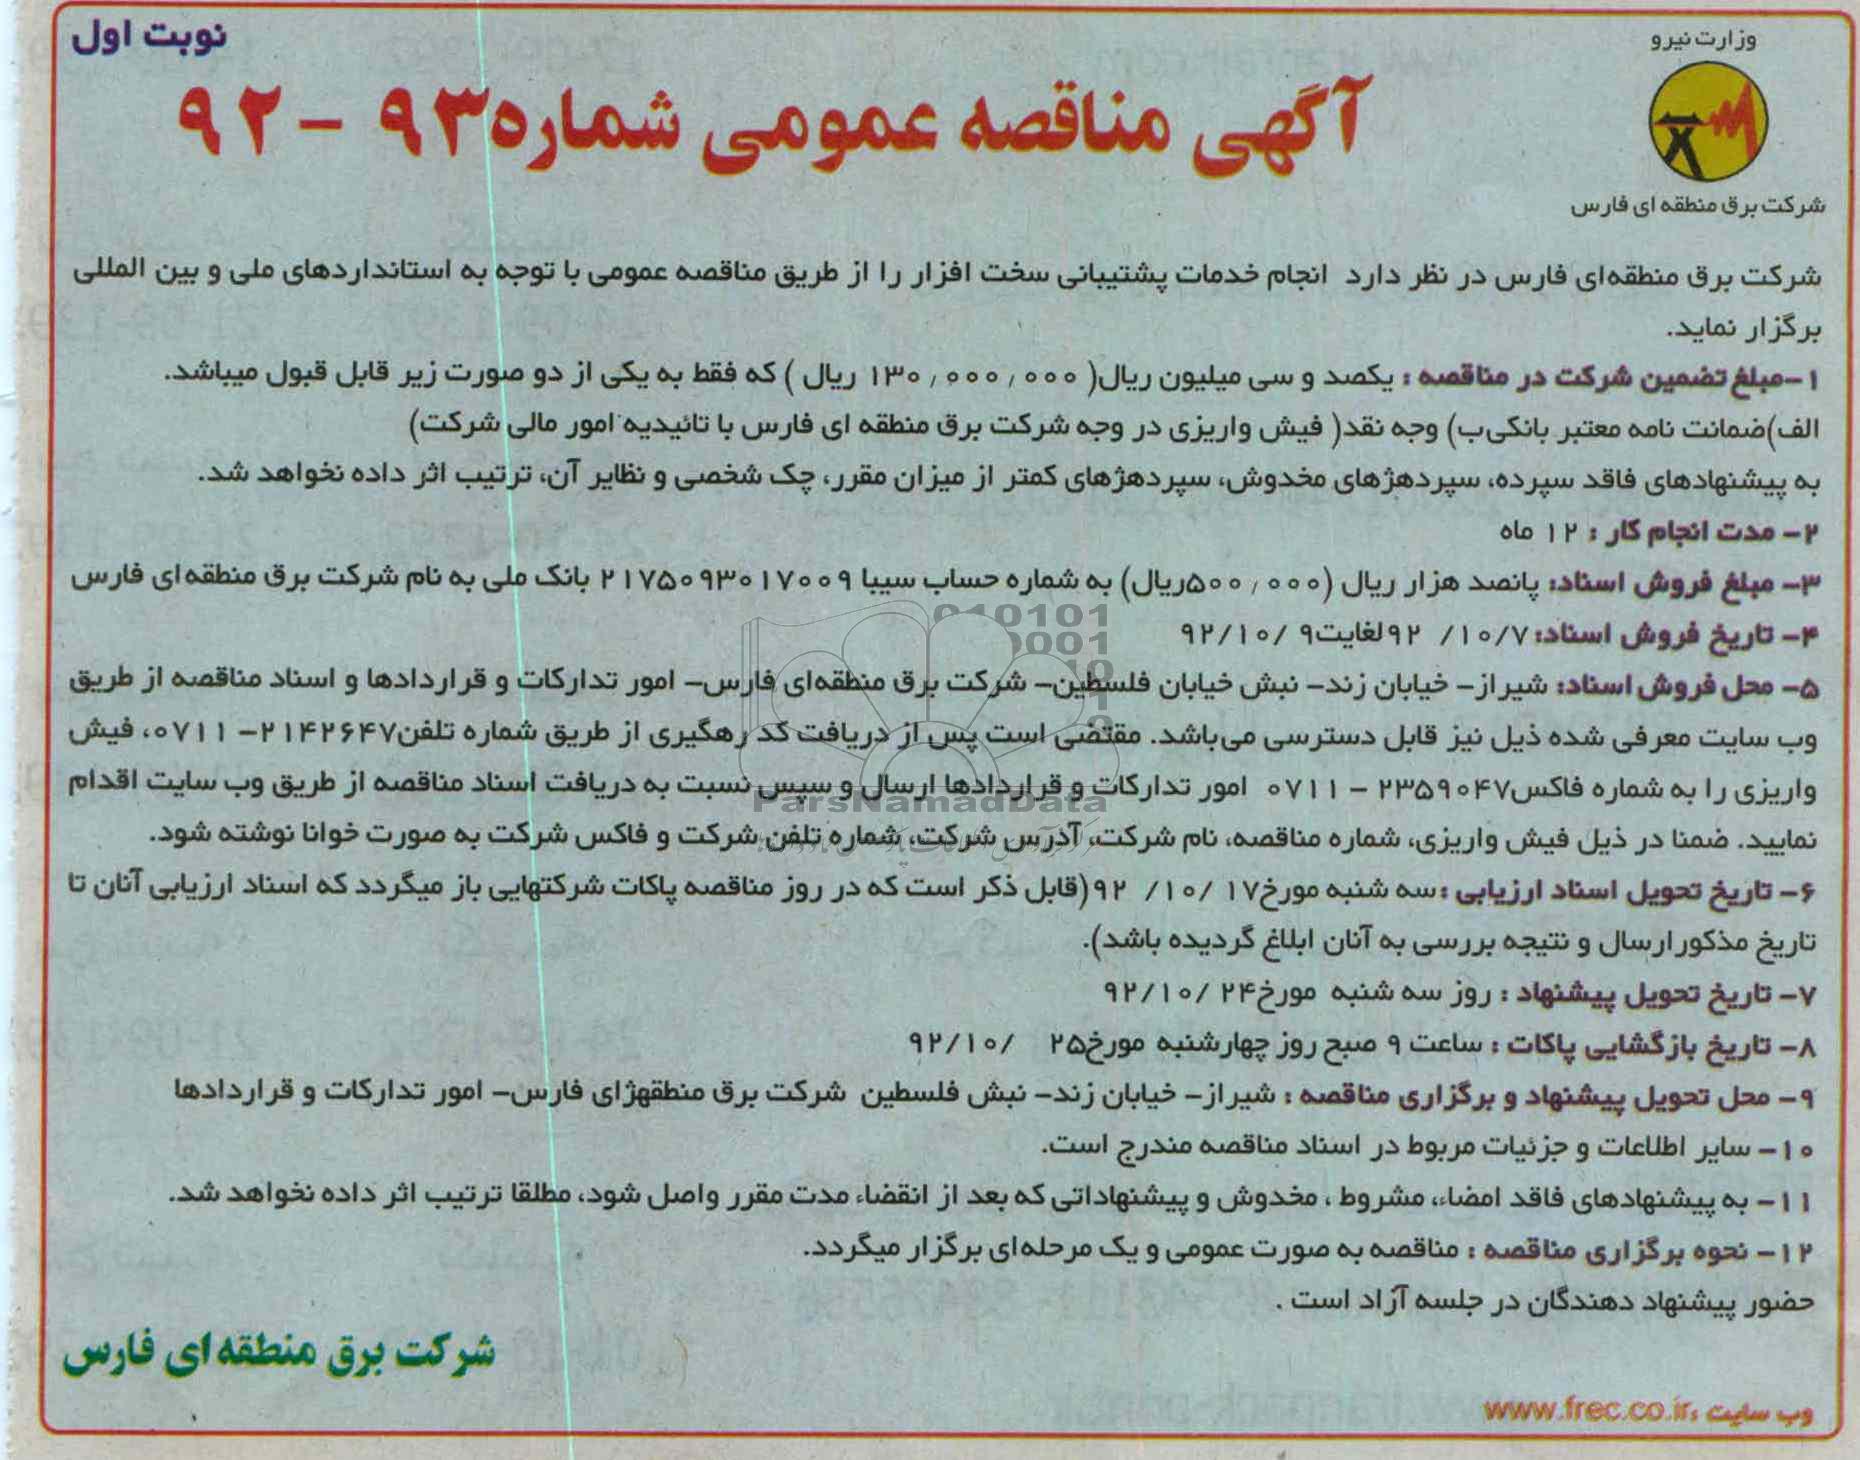 نوبت اول
وزارت نیرو
شرکت برق منطقه ای فارس
آگهی مناقصه عمومی شماره ۹۳ - ۹۲
شرکت برق منطقه‌ای فارس در نظر دارد انجام خدمات پشتیبانی سخت افزار را از طریق مناقصه عمومی با توجه به استانداردهای ملی و بین المللی
برگزار نماید.
۱-مبلغ تضمین شرکت در مناقصه : یکصد و سی میلیون ریال( ۱۳۰٫۰۰۰٫۰۰۰ ریال ) که فقط به یکی از دو صورت زیر قابل قبول میباشد.
الف)ضمانت نامه معتبر بانکی‌ب) وجه نقد( فیش واریزی در وجه شرکت برق منطقه ای فارس با تائیدیه امور مالی شرکت)
به پیشنهادهای فاقد سپرده، سپردهژهای مخدوش، سپردهژهای کمتر از میزان مقرر، چک شخصی و نظایر آن، ترتیب اثر داده نخواهد شد.
۲- مدت انجام کار : ۱۲ ماه
۳- مبلغ فروش اسناد: پانصد هزار ریال (۵۰۰٫۰۰۰ریال) به شماره حساب سیبا ۲۱۷۵۰۹۳۰۱۷۰۰۹ بانک ملی به نام شرکت برق منطقه‌ای فارس
۴- تاریخ فروش اسناد: ۹۲ /۱۰/۷ لغایت ۹۲/۱۰/ ۹
۵- محل فروش اسناد: شیراز- خیابان زند- نبش خیابان فلسطین- شرکت برق منطقه‌ای فارس- امور تدارکات و قراردادها و اسناد مناقصه از طریق
وب سایت معرفی شده ذیل نیز قابل دسترسی می‌باشد. مقتضی است پس از دریافت کد رهگیری از طریق شماره تلفن۲۱۴۲۶۴۷- ۰۷۱۱، فیش
واریزی را به شماره فاکس۲۳۵۹۰۴۷ - ۰۷۱۱ امور تدارکات و قراردادها ارسال و سپس نسبت به دریافت اسناد مناقصه از طریق وب سایت اقدام
نمایید. ضمنا در ذیل فیش واریزی، شماره مناقصه، نام شرکت، آدرس شرکت، شماره تلفن شرکت و فاکس شرکت به صورت خوانا نوشته شود.
۶- تاریخ تحویل اسناد ارزیابی :سه شنبه مورخ۱۷ /۱۰/ ۹۲(قابل ذکر است که در روز مناقصه پاکات شرکتهایی باز میگردد که اسناد ارزیابی آنان تا
تاریخ مذکورارسال و نتیجه بررسی به آنان ابلاغ گردیده باشد).
۷- تاریخ تحویل پیشنهاد : روز سه شنبه مورخ۲۴ /۹۲/۱۰
۸- تاریخ بازگشایی پاکات : ساعت ۹ صبح روز چهارشنبه مورخ۲۵ /۹۲/۱۰
۹- محل تحویل پیشنهاد و برگزاری مناقصه : شیراز- خیابان زند- نبش فلسطین شرکت برق منطقهژای فارس- امور تدارکات و قراردادها
۱۰- سایر اطلاعات و جزئیات مربوط در اسناد مناقصه مندرج است.
۱۱- به پیشنهادهای فاقد امضاء، مشروط ، مخدوش و پیشنهاداتی که بعد از انقضاء مدت مقرر واصل شود، مطلقا ترتیب اثر داده نخواهد شد.
۱۲- نحوه برگزاری مناقصه : مناقصه به صورت عمومی و یک مرحله‌ای برگزار میگردد.
حضور پیشنهاد دهندگان در جلسه آزاد است .
شرکت برق منطقه ای فارس
وب سایت :www.frec.co.ir
ParsNamadData